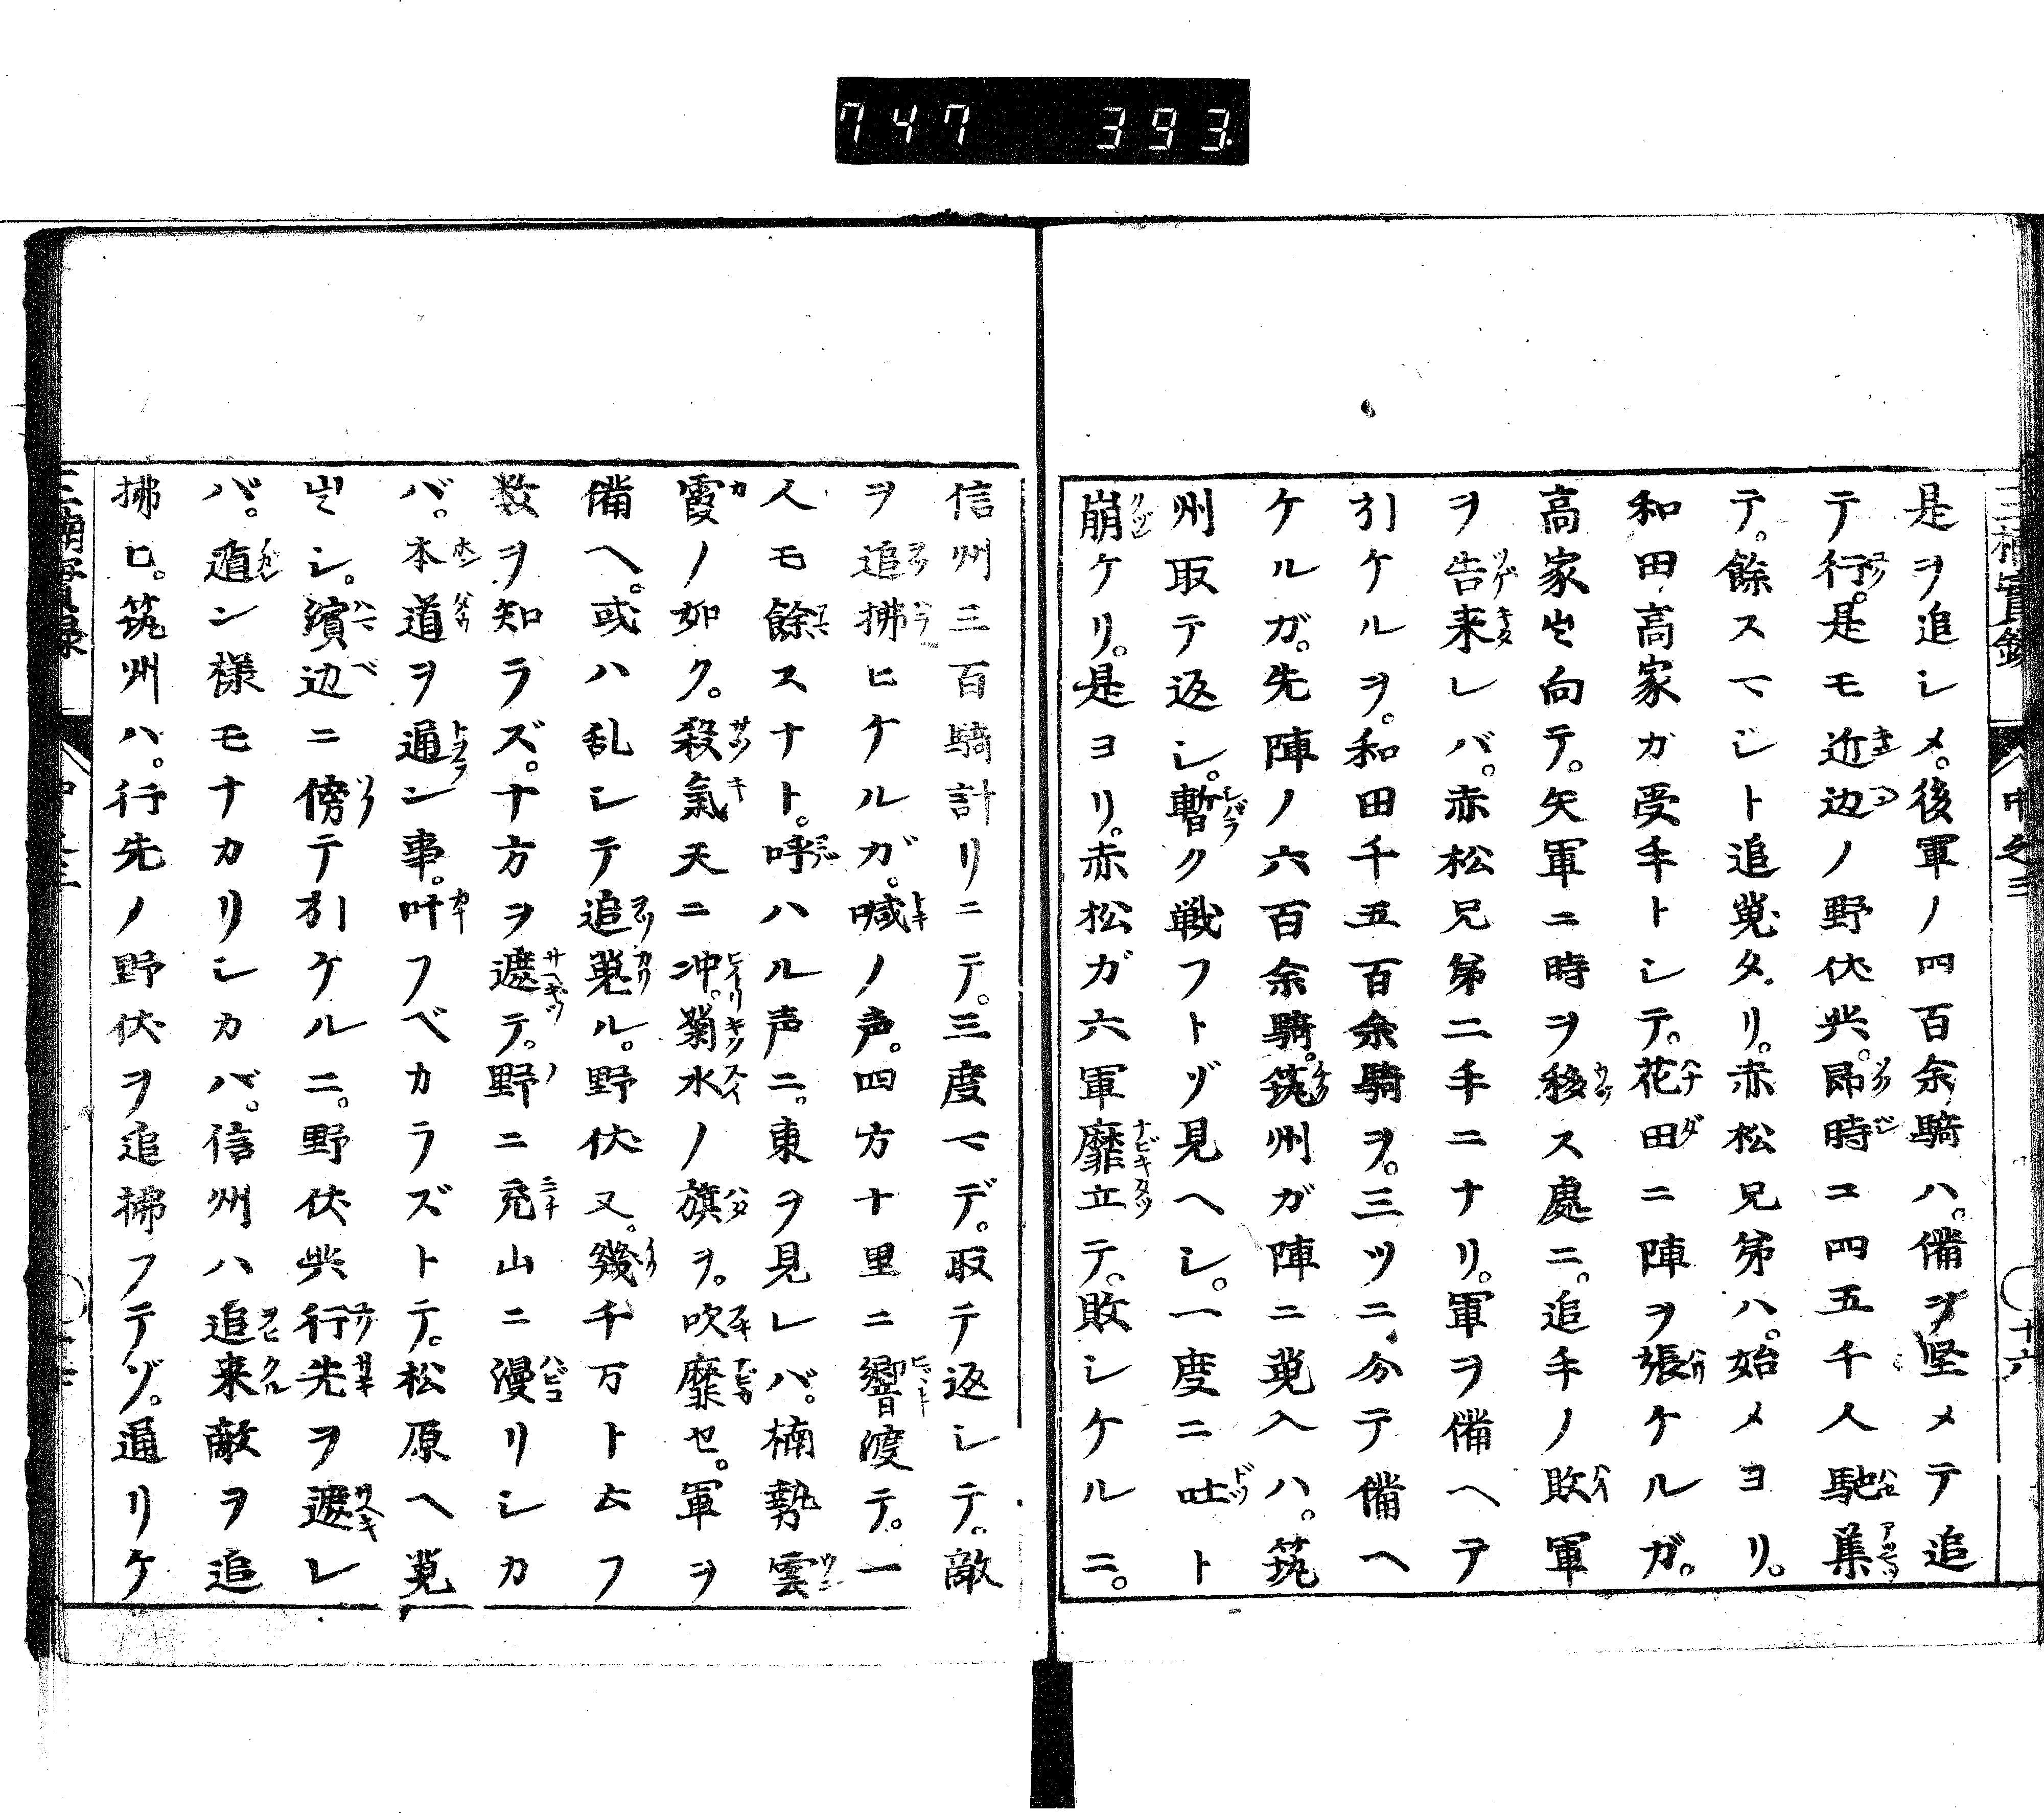 747 393.
三楠實録 中之三 十六
是ヲ追シメ。後軍ノ四百余騎ハ。備ヲ堅メテ追
テ行。是モ近辺ノ野伏共。即時ニ四五千人馳集
テ。餘スマジト追蒐タリ。赤松兄弟ハ。始メヨリ。
和田高家ガ受手トシテ。花田ニ陣ヲ張ケルガ。
高家出向テ。矢軍ニ時ヲ移ス處ニ。追手ノ敗軍
ヲ告来レバ。赤松兄弟二手ニナリ。軍ヲ備ヘテ
引ケルヲ。和田千五百余騎ヲ。三ツニ分テ備ヘ
ケルガ。先陣ノ六百余騎。筑州ガ陣ニ蒐入ハ。筑
州取テ返シ。暫ク戦フトゾ見ヘシ。一度ニ吐ト
崩ケリ。是ヨリ。赤松ガ六軍靡立テ。敗シケルニ。
信州三百騎計リニテ。三度マデ。取テ返シテ。敵
ヲ追拂ヒケルガ。喊ノ声。四方十里ニ響渡テ。一
人モ餘スナト。呼ハル声ニ。東ヲ見レバ。楠勢雲
霞ノ如ク。殺氣天ニ冲。菊水ノ旗ヲ。吹靡セ。軍ヲ
備ヘ。或ハ乱シテ追蒐ル。野伏又。幾千万ト云フ
数ヲ知ラズ。十方ヲ遮テ。野ニ充山ニ漫リシカ
バ。本道ヲ通ン事。叶フベカラズトテ。松原ヘ蒐
出シ。濱辺ニ傍テ引ケルニ。野伏共行先ヲ遮レ
バ。遁ン様モナカリシカバ。信州ハ追来敵ヲ追
拂ヒ。筑州ハ。行先ノ野伏ヲ追拂フテゾ。通リケ